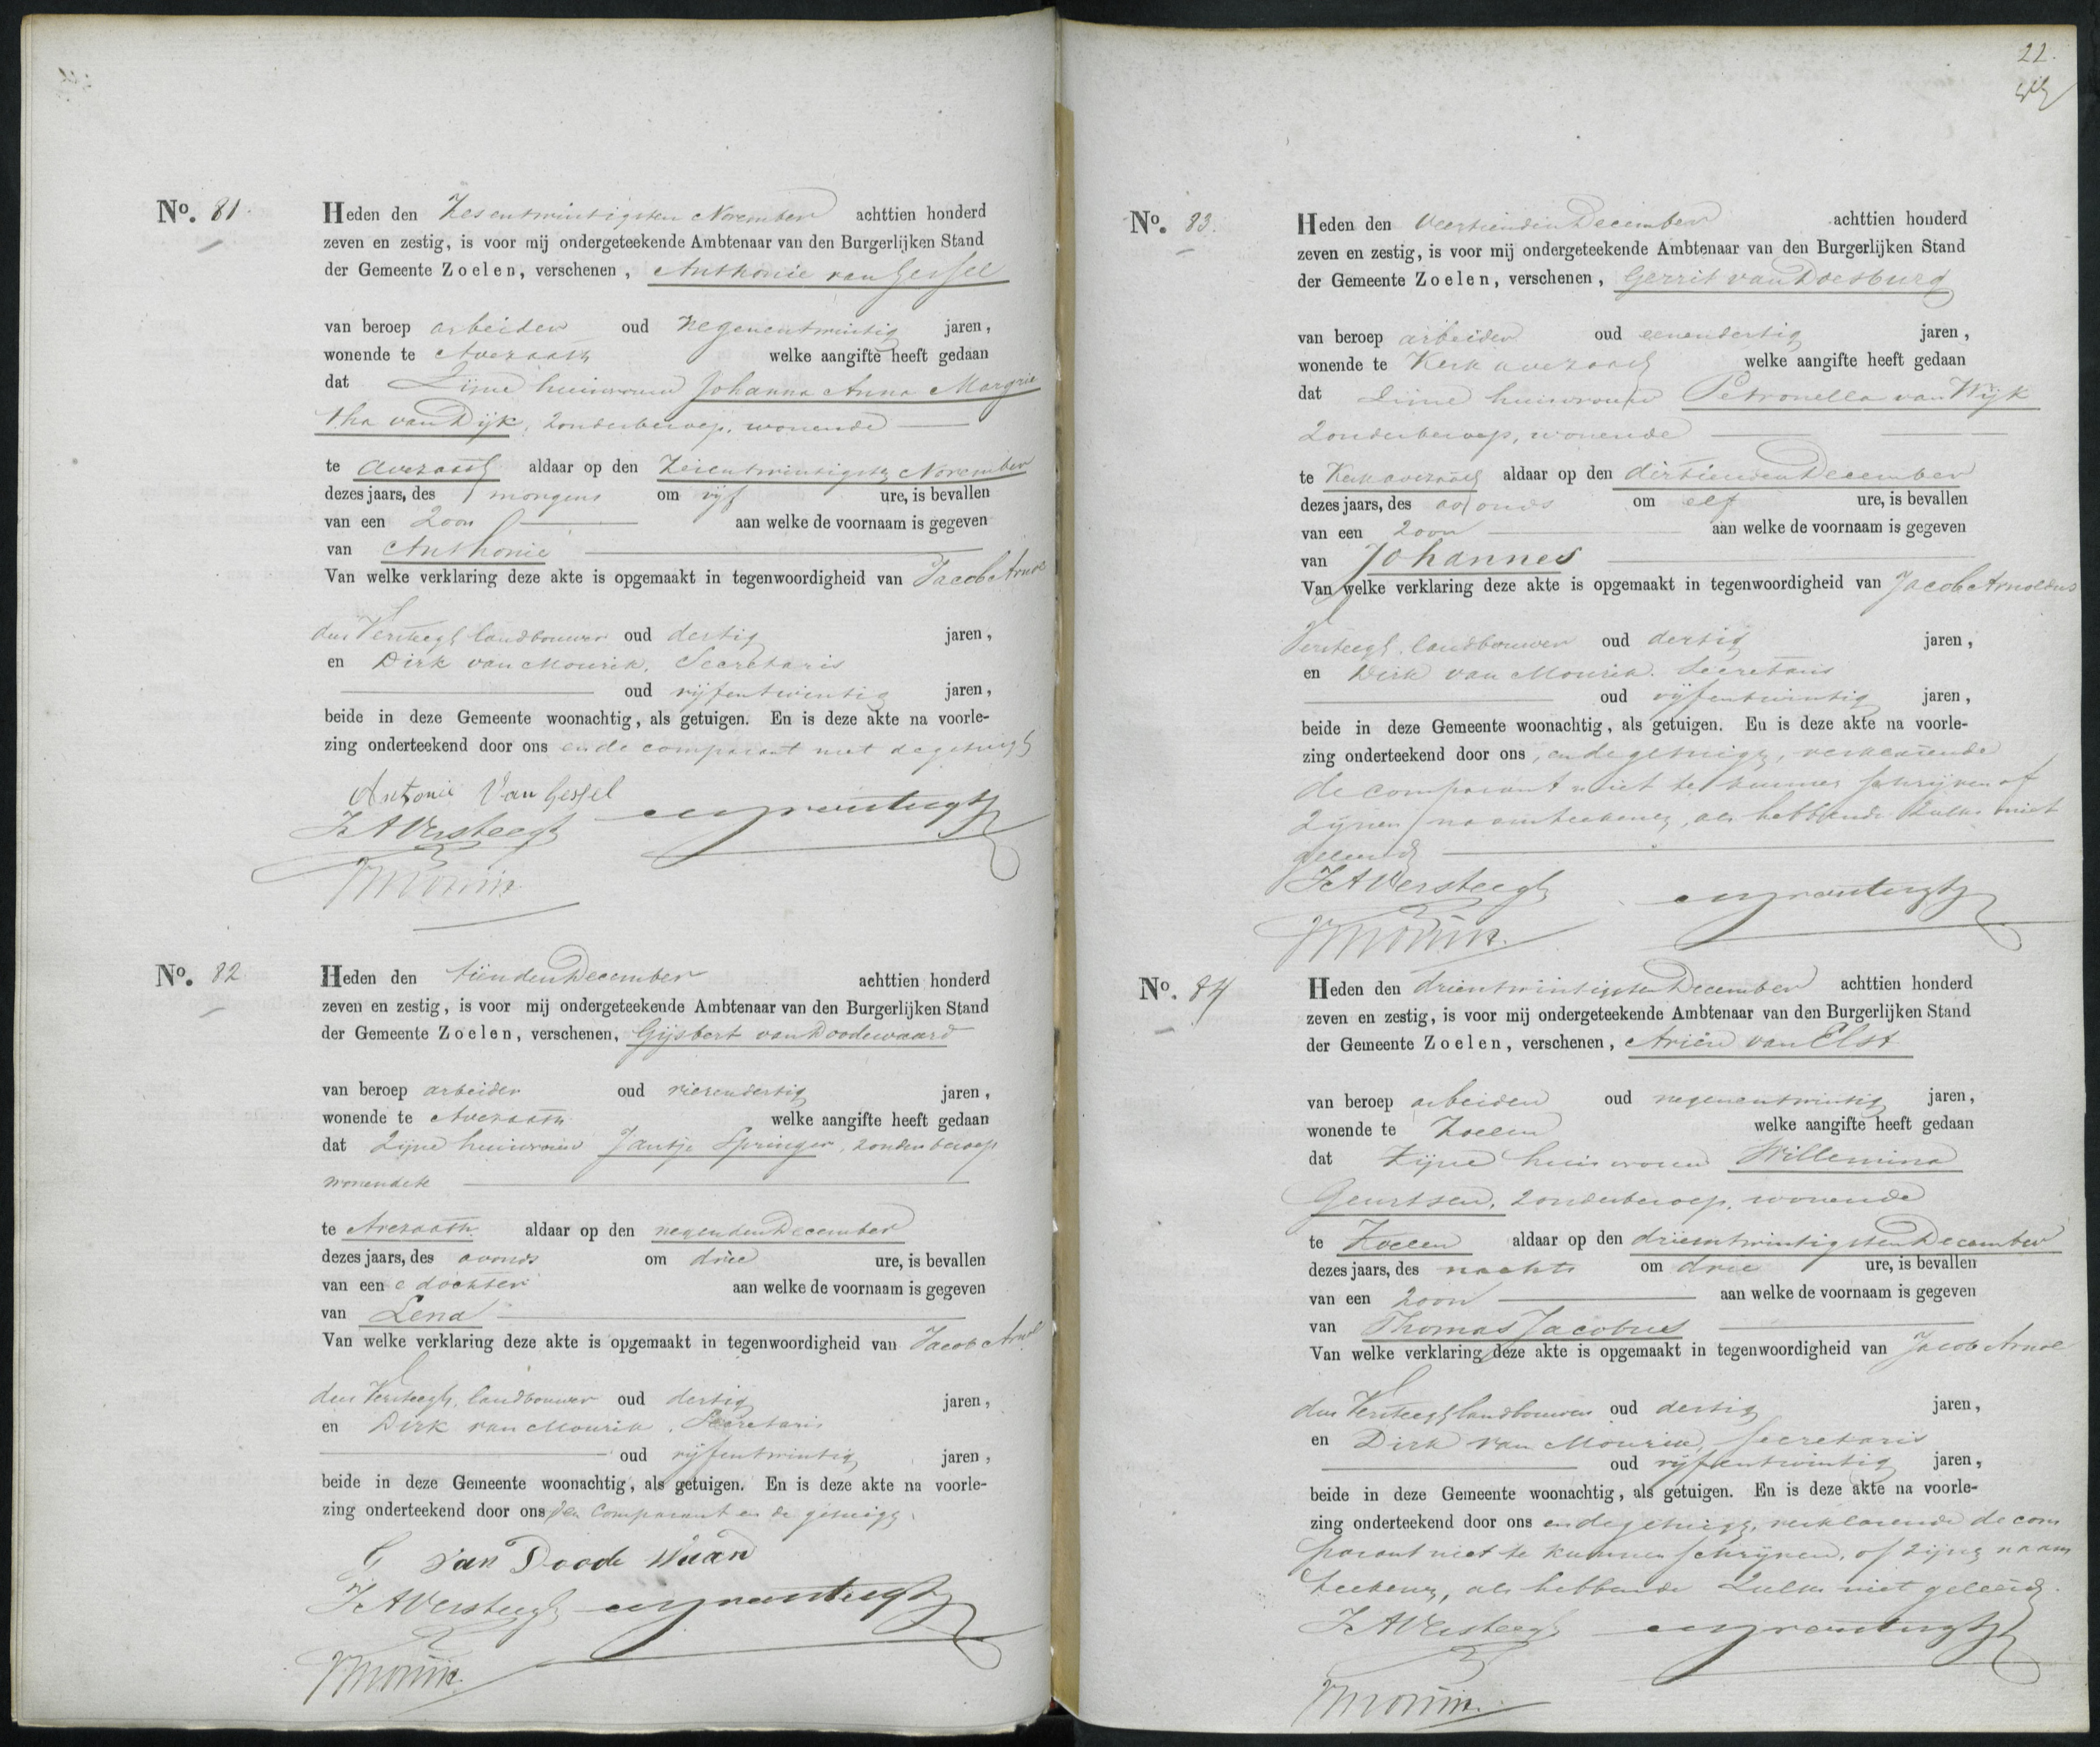 No. 81.
Heden den Zesentwintigsten November achttien honderd
zeven en zestig, is voor mij ondergeteekende Ambtenaar van den Burgerlijken Stand
der Gemeente Zoelen, verschenen, Anthonie van Gessel
van beroep arbeider oud negenentwintig jaren,
wonende te Avezaath welke aangifte heeft gedaan
dat Zijne huisvrouw Johanna Anna Margrie
tha van Dijk, zonder beroep, wonende
te Avezaath aldaar op den Zesentwintigsten November
dezes jaars, des morgens om vijf ure, is bevallen
van een Zoon aan welke de voornaam is gegeven
van Anthonie
Van welke verklaring deze akte is opgemaakt in tegenwoordigheid van Jacob Arnol
dus Versteegh landbouwer oud dertig jaren,
en Dirk van Mourik, Secretaris
oud vijfentwintig jaren,
beide in deze Gemeente woonachtig, als getuigen. En is deze akte na voorle-
zing onderteekend door ons en de comparant met de getuigen
Antonie Van Gessel
J A Versteegh
No. 82
Heden den tienden December achttien honderd
zeven en zestig, is voor mij ondergeteekende Ambtenaar van den Burgerlijken Stand
der Gemeente Zoelen, verschenen, Gijsbert van Doodewaard
van beroep arbeider oud vierendertig jaren,
wonende te Avezaath welke aangifte heeft gedaan
dat Zijne huisvrouw Jantje Springer, zonder beroep
wonende te
te Avezaath aldaar op den negenden December
dezes jaars, des avonds om drie ure, is bevallen
van een e dochter aan welke de voornaam is gegeven
van Lena
Van welke verklaring deze akte is opgemaakt in tegenwoordigheid van Jacob Arnol
dus Versteegh, landbouwer oud dertig jaren,
en Dirk van Mourik, Secretaris
oud vijfentwintig jaren,
beide in deze Gemeente woonachtig, als getuigen. En is deze akte na voorle-
zing onderteekend door ons de Comparant en de getuigen.
G van Doode Waard
J A Versteegh
22.
No. 83.
Heden den veertienden December achttien honderd
zeven en zestig, is voor mij ondergeteekende Ambtenaar van den Burgerlijken Stand
der Gemeente Zoelen, verschenen, Gerrit van Doesburg
van beroep arbeider oud eenendertig jaren,
wonende te Kerk avezaath welke aangifte heeft gedaan
dat Zijne huisvrouw Petronella van Wijk
Zonder beroep, wonende
te Kerkavezaath aldaar op den dertienden December
dezes jaars, des avonds om elf ure, is bevallen
van een Zoon aan welke de voornaam is gegeven
van Johannes
Van welke verklaring deze akte is opgemaakt in tegenwoordigheid van Jacob Arnoldus
Versteegh, landbouwer oud dertig jaren,
en Dirk van Mourik, Secretaris
oud vijfentwintig jaren,
beide in deze Gemeente woonachtig, als getuigen. En is deze akte na voorle-
zing onderteekend door ons, en de getuigen, verklarende
de comparant niet te kunnen schrijven of
Zijnen naam teekenen, als hebbende zulks niet
geleerd
J A Versteegh
No. 84
Heden den drieentwintigsten December achttien honderd
zeven en zestig, is voor mij ondergeteekende Ambtenaar van den Burgerlijken Stand
der Gemeente Zoelen, verschenen, Ariën van Elst
van beroep arbeider oud negenentwintig jaren,
wonende te Zoelen welke aangifte heeft gedaan
dat Zijne huisvrouw Willemina
Geurtsen, Zonder beroep, wonende
te Zoelen aldaar op den drieentwintigsten December
dezes jaars, des nachts om drie ure, is bevallen
van een Zoon aan welke de voornaam is gegeven
van Thomas Jacobus
Van welke verklaring deze akte is opgemaakt in tegenwoordigheid van Jacob Arnol
dus Versteegh landbouwer oud dertig jaren,
en Dirk van Mourik, Secretaris
oud vijfentwintig jaren,
beide in deze Gemeente woonachtig, als getuigen. En is deze akte na voorle-
zing onderteekend door ons en de getuigen, verklarende de com
parant niet te kunnen schrijven, of zijnen naam
teekenen, als hebbende Zulks niet geleerd.
J A Versteegh